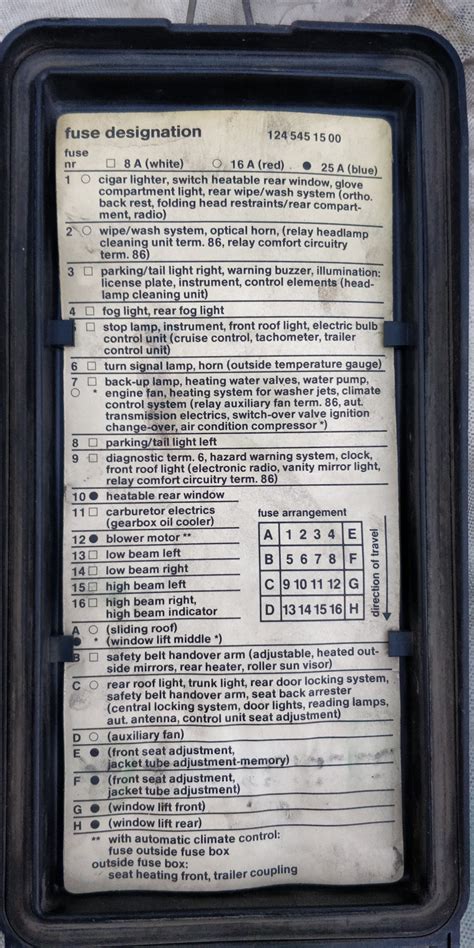 fuse designation 124 545 15 00
fuse
nr □ 8 A (white) ○ 16 A (red) ● 25 A (blue)
1 ○ cigar lighter, switch heatable rear window, glove
compartment light, rear wipe/wash system (ortho.
back rest, folding head restraints/rear compart-
ment, radio)
2 ○ wipe/wash system, optical horn, (relay headlamp
cleaning unit term. 86, relay comfort circuitry
term. 86)
3 □ parking/tail light right, warning buzzer, illumination:
license plate, instrument, control elements (head-
lamp cleaning unit)
4 □ fog light, rear fog light
□ stop lamp, instrument, front roof light, electric bulb
control unit (cruise control, tachometer, trailer
control unit)
6 □ turn signal lamp, horn (outside temperature gauge)
7 □ back-up lamp, heating water valves, water pump,
○ * engine fan, heating system for washer jets, climate
control system (relay auxiliary fan term. 86, aut.
transmission electrics, switch-over valve ignition
change-over, air condition compressor *)
8 □ parking/tail light left
9 □ diagnostic term. 6, hazard warning system, clock,
front roof light (electronic radio, vanity mirror light,
relay comfort circuitry term. 86)
10 ● heatable rear window
11 □ carburetor electrics
(gearbox oil cooler)
12 ● blower motor **
13 □ low beam left
14 □ low beam right
15 □ high beam left
16 □ high beam right,
high beam indicator
fuse arrangement
A 1 2 3 4 E
B 5 6 7 8 F
C 9 10 11 12 G
D 13 14 15 16 H
direction of travel
A ○ (sliding roof)
● * (window lift middle *)
B □ safety belt handover arm (adjustable, heated out-
side mirrors, rear heater, roller sun visor)
C ○ rear roof light, trunk light, rear door locking system,
safety belt handover arm, seat back arrester
(central locking system, door lights, reading lamps,
aut. antenna, control unit seat adjustment)
D ○ (auxiliary fan)
E ● (front seat adjustment,
jacket tube adjustment-memory)
F ● (front seat adjustment,
jacket tube adjustment)
G ● (window lift front)
H ● (window lift rear)
** with automatic climate control:
fuse outside fuse box
outside fuse box:
seat heating front, trailer coupling